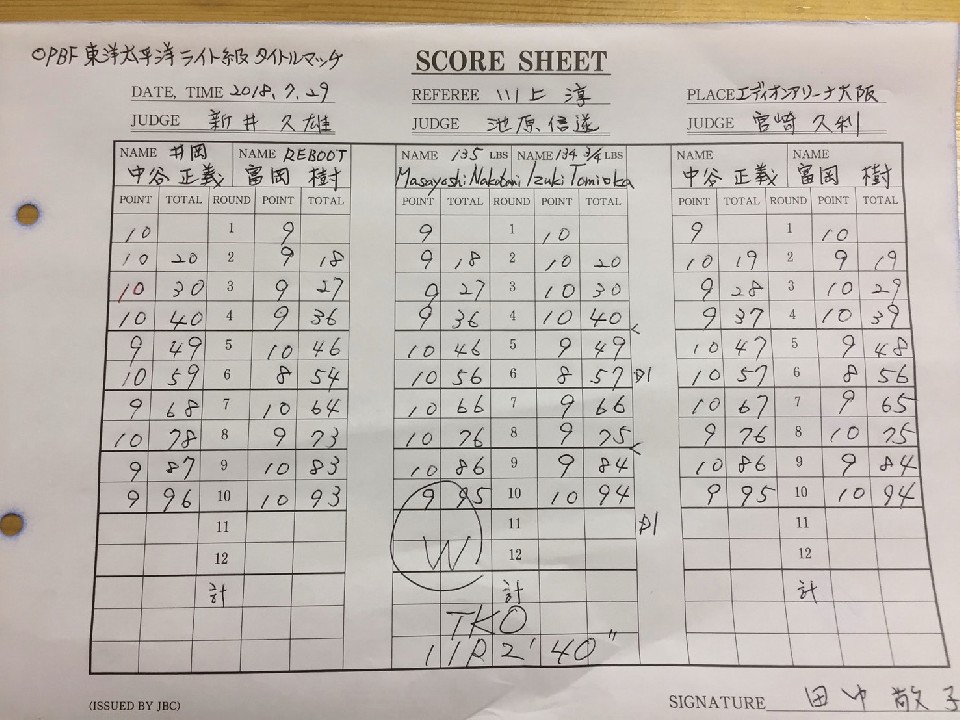 OPBF 東洋太平洋ライト級タイトルマッチ SCORE SHEET
DATE, TIME 2018.7.29 REFEREE 川上 淳 PLACE エディオンアリーナ大阪
JUDGE 新井 久雄 JUDGE 池原信遂 JUDGE 宮崎久利
NAME 井岡 NAME REBOOT NAME 135 LBS NAME 134 3/4 LBS NAME NAME
中谷 正義 富岡 樹 Masayoshi Nakatani Izuki Tomioka 中谷 正義 富岡 樹
POINT TOTAL ROUND POINT TOTAL POINT TOTAL ROUND POINT TOTAL POINT TOTAL ROUND POINT TOTAL
10 1 9 9 1 10 9 1 10
10 20 2 9 18 9 18 2 10 20 10 19 2 9 19
10 30 3 9 27 9 27 3 10 30 9 28 3 10 29
10 40 4 9 36 9 36 4 10 40 9 37 4 10 39
9 49 5 10 46 10 46 5 9 49 10 47 5 9 48
10 59 6 8 54 10 56 6 8 57 D1 10 57 6 8 56
9 68 7 10 64 10 66 7 9 66 10 67 7 9 65
10 78 8 9 73 10 76 8 9 75 9 76 8 10 75
9 87 9 10 83 10 86 9 9 84 10 86 9 9 84
9 96 10 10 93 9 95 10 10 94 9 95 10 10 94
11 11 D1 11
12 W 12 12
計 計 計
TKO
11R 2'40"
(ISSUED BY JBC) SIGNATURE 田中 敬子